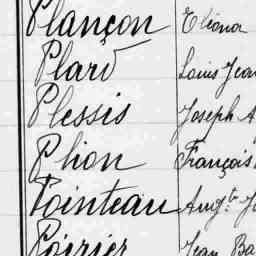 Plançon Eliona
Plard Louis Jean
Plessis Joseph A
Plion François
Pointeau Aug.te J
Poirier Jean Ba